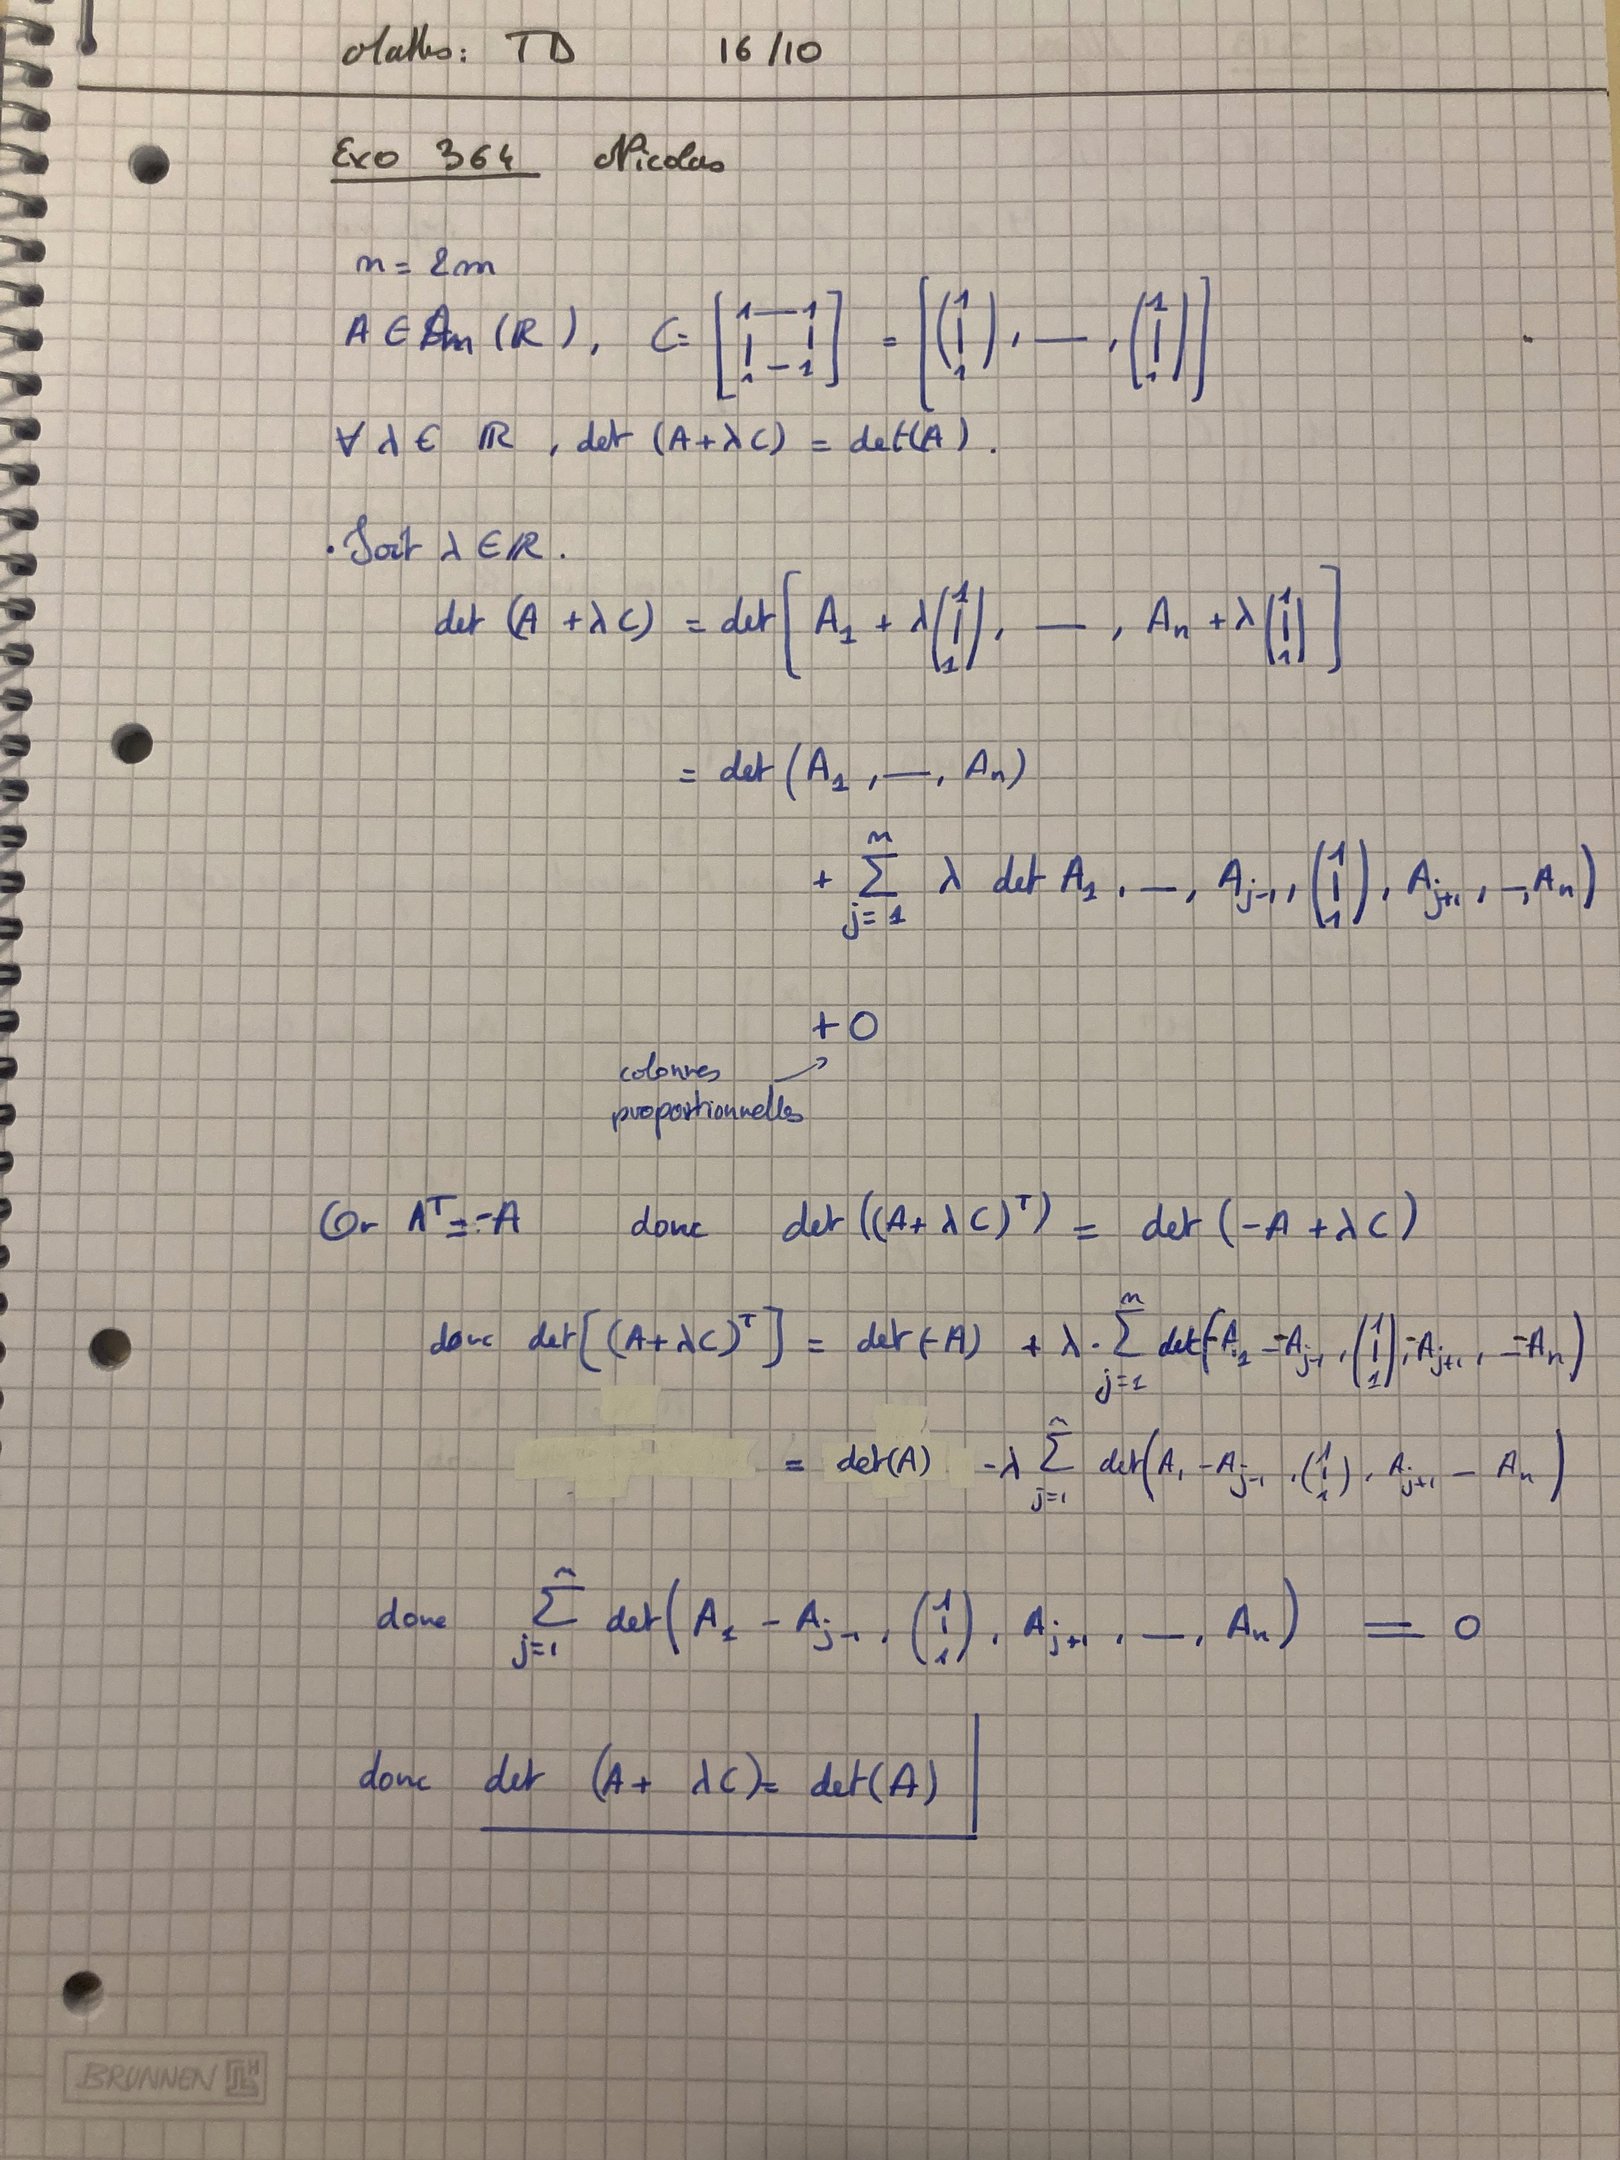 Maths: TD 16/10
Exo 364 Nicolas
n = 2m
A ∈ Am (R), C = [1—1 | | 1–1] = [(1 | 1), —, (1 | 1)]
∀ λ ∈ R, det (A+λC) = det(A).
• Soit λ ∈ R.
det (A + λC) = det[A1 + λ(1 | 1), —, An + λ(1 | 1)]
= det (A1, —, An)
+ ∑ j=1 n λ det A1, —, Aj-1, (1 | 1), Aj+1, –, An)
+0
colonnes
proportionnelles
Or A^T = -A donc det ((A+λC)^T) = det (-A + λC)
donc det[(A+λC)^T] = det(-A) + λ. ∑ j=1 n det(-A1 — -Aj-1, (1 | 1), -Aj+1, — -An)
= det(A) - λ ∑ j=1 n det(A1 – Aj-1, (1 | 1), Aj+1 – An)
donc ∑ j=1 n det(A1 – Aj-1, (1 | 1), Aj+1, —, An) = 0
donc det (A + λC) = det(A)
BRUNNEN